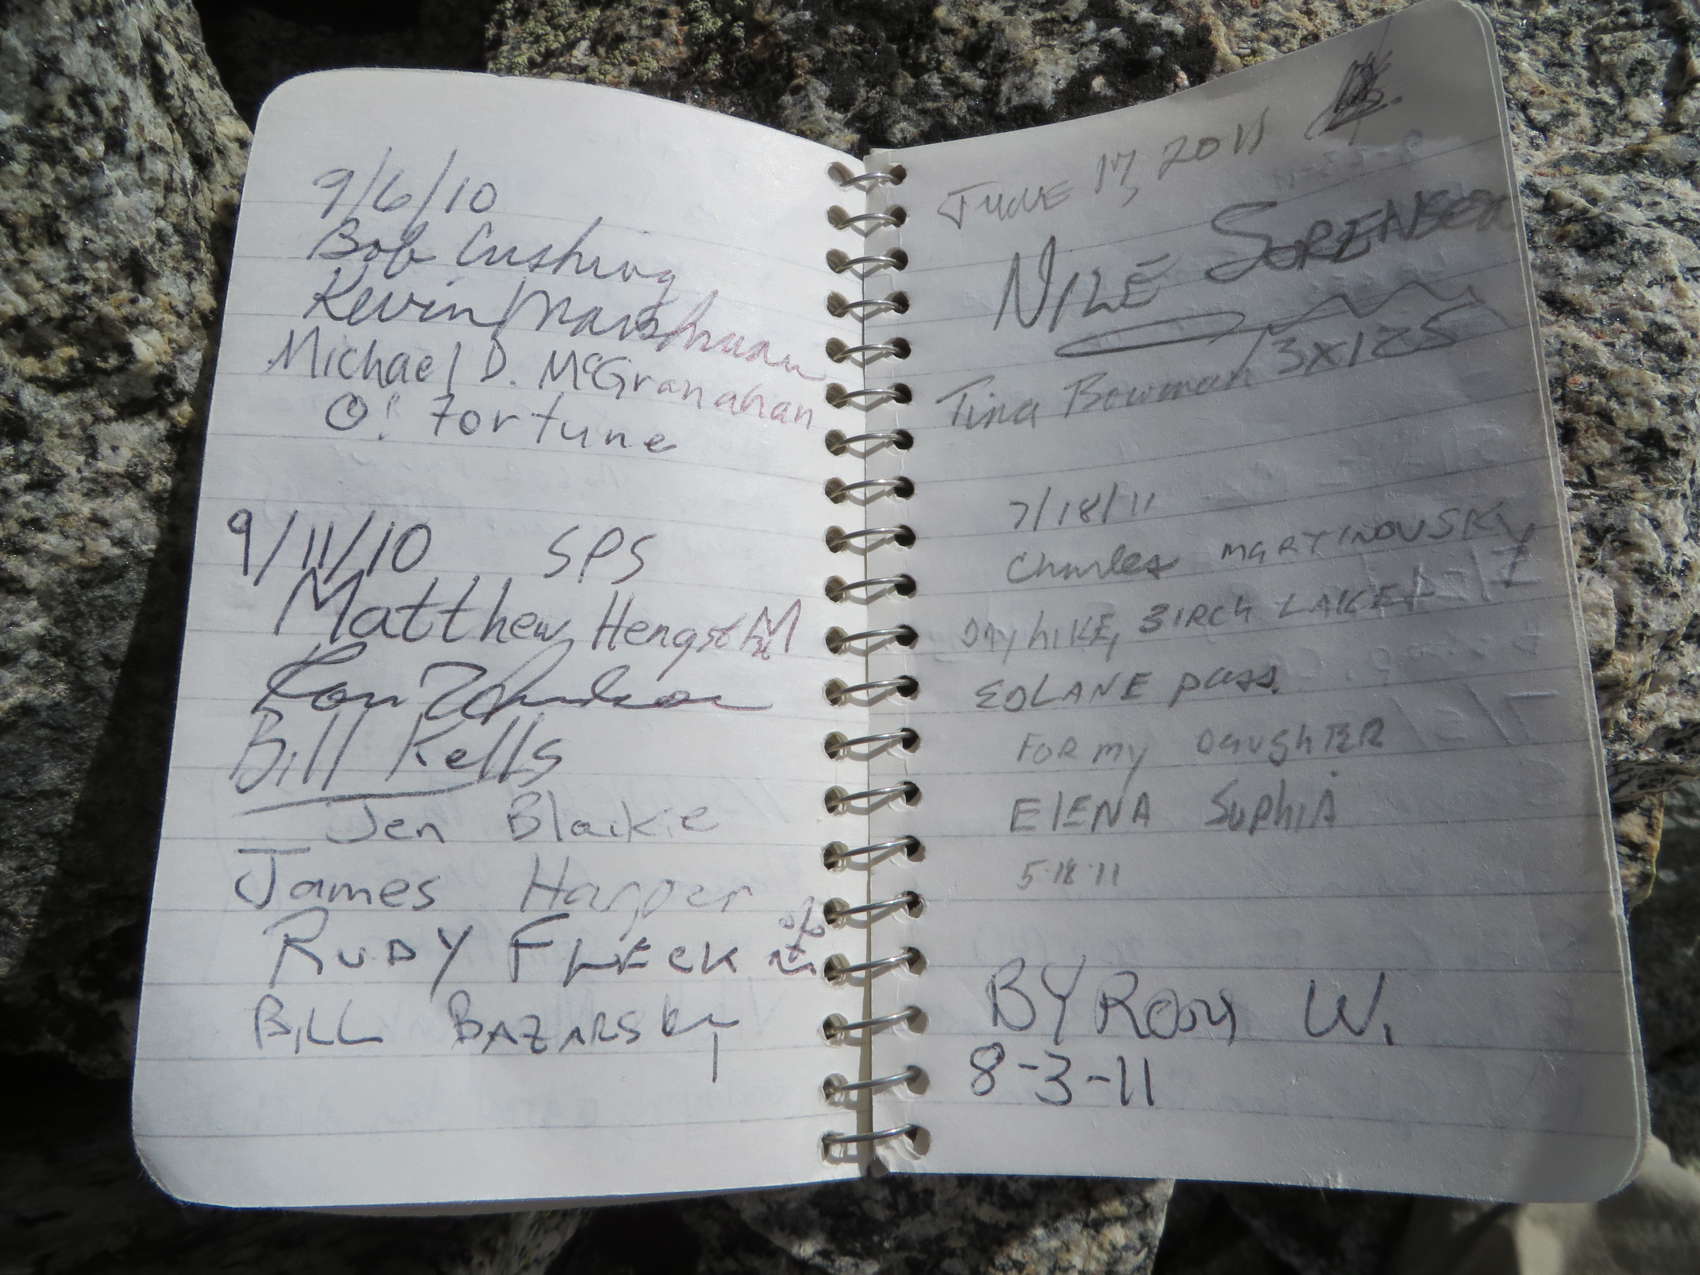 9/6/10
Bob Cushing
Kevin
Michael D. McGranahan
O! Fortune
9/11/10 SPS
Matthew Hengst
Ron
Bill Kells
Jen Blaikie
James Harper
RUDY FLECK
BILL BAZARSKY
JUNE 17, 2011
NILE SORENSEN
Tina Bowman 3X125
7/18/11
Charles MARTINOVSKY
Dayhike, BIRCH LAKE
SOLANE pass.
FOR my DaughTER
ElENA SophiA
5·18·11
BYRON W.
8-3-11